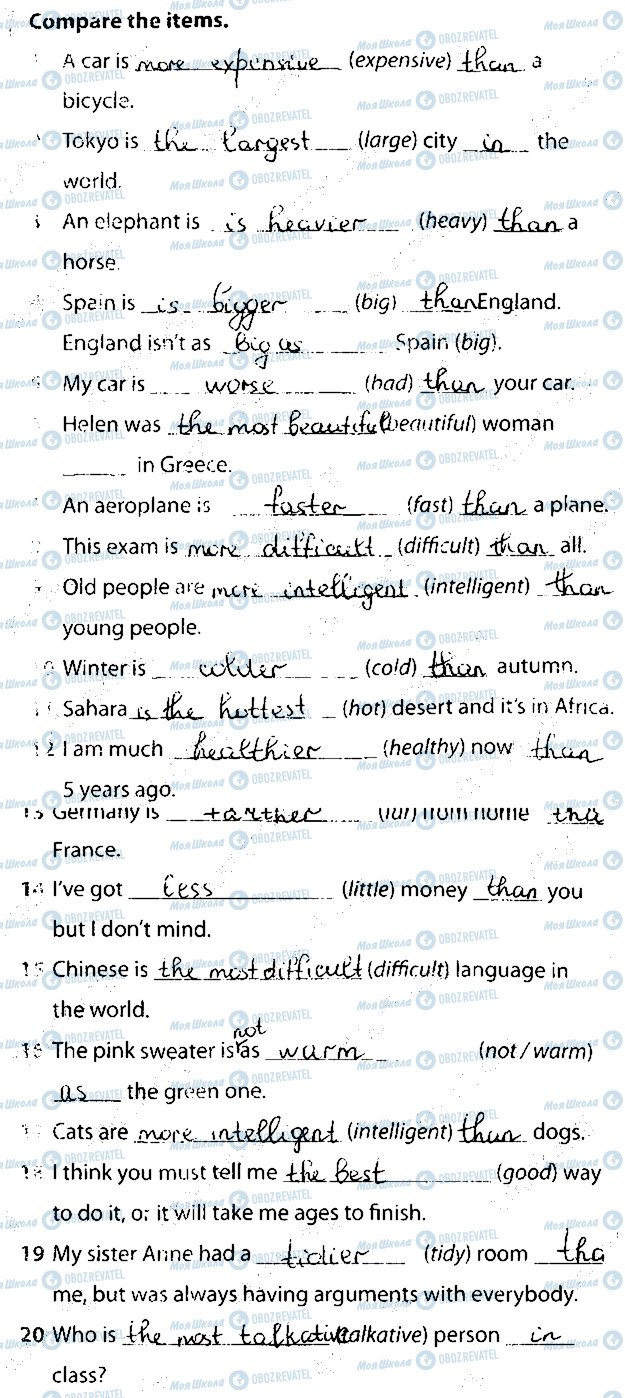 Compare the items.
A car is more expensive (expensive) than a
bicycle.
Tokyo is the largest (large) city in the
world.
An elephant is is heavier (heavy) than a
horse.
Spain is is bigger (big) than England.
England isn't as big as Spain (big).
My car is worse (bad) than your car.
Helen was the most beautiful (beautiful) woman
in Greece.
An aeroplane is faster (fast) than a plane.
This exam is more difficult (difficult) than all.
Old people are more intelligent (intelligent) than
young people.
Winter is colder (cold) than autumn.
11 Sahara is the hottest (hot) desert and it's in Africa.
12 I am much healthier (healthy) now than
5 years ago.
13 Germany is farther (far) from home tha
France.
14 I've got less (little) money than you
but I don't mind.
15 Chinese is the most difficult (difficult) language in
the world.
not
16 The pink sweater is as warm (not / warm)
as the green one.
Cats are more intelligent (intelligent) than dogs.
18 I think you must tell me the best (good) way
to do it, or it will take me ages to finish.
19 My sister Anne had a tidier (tidy) room tha
me, but was always having arguments with everybody.
20 Who is the most talkative (talkative) person in
class?